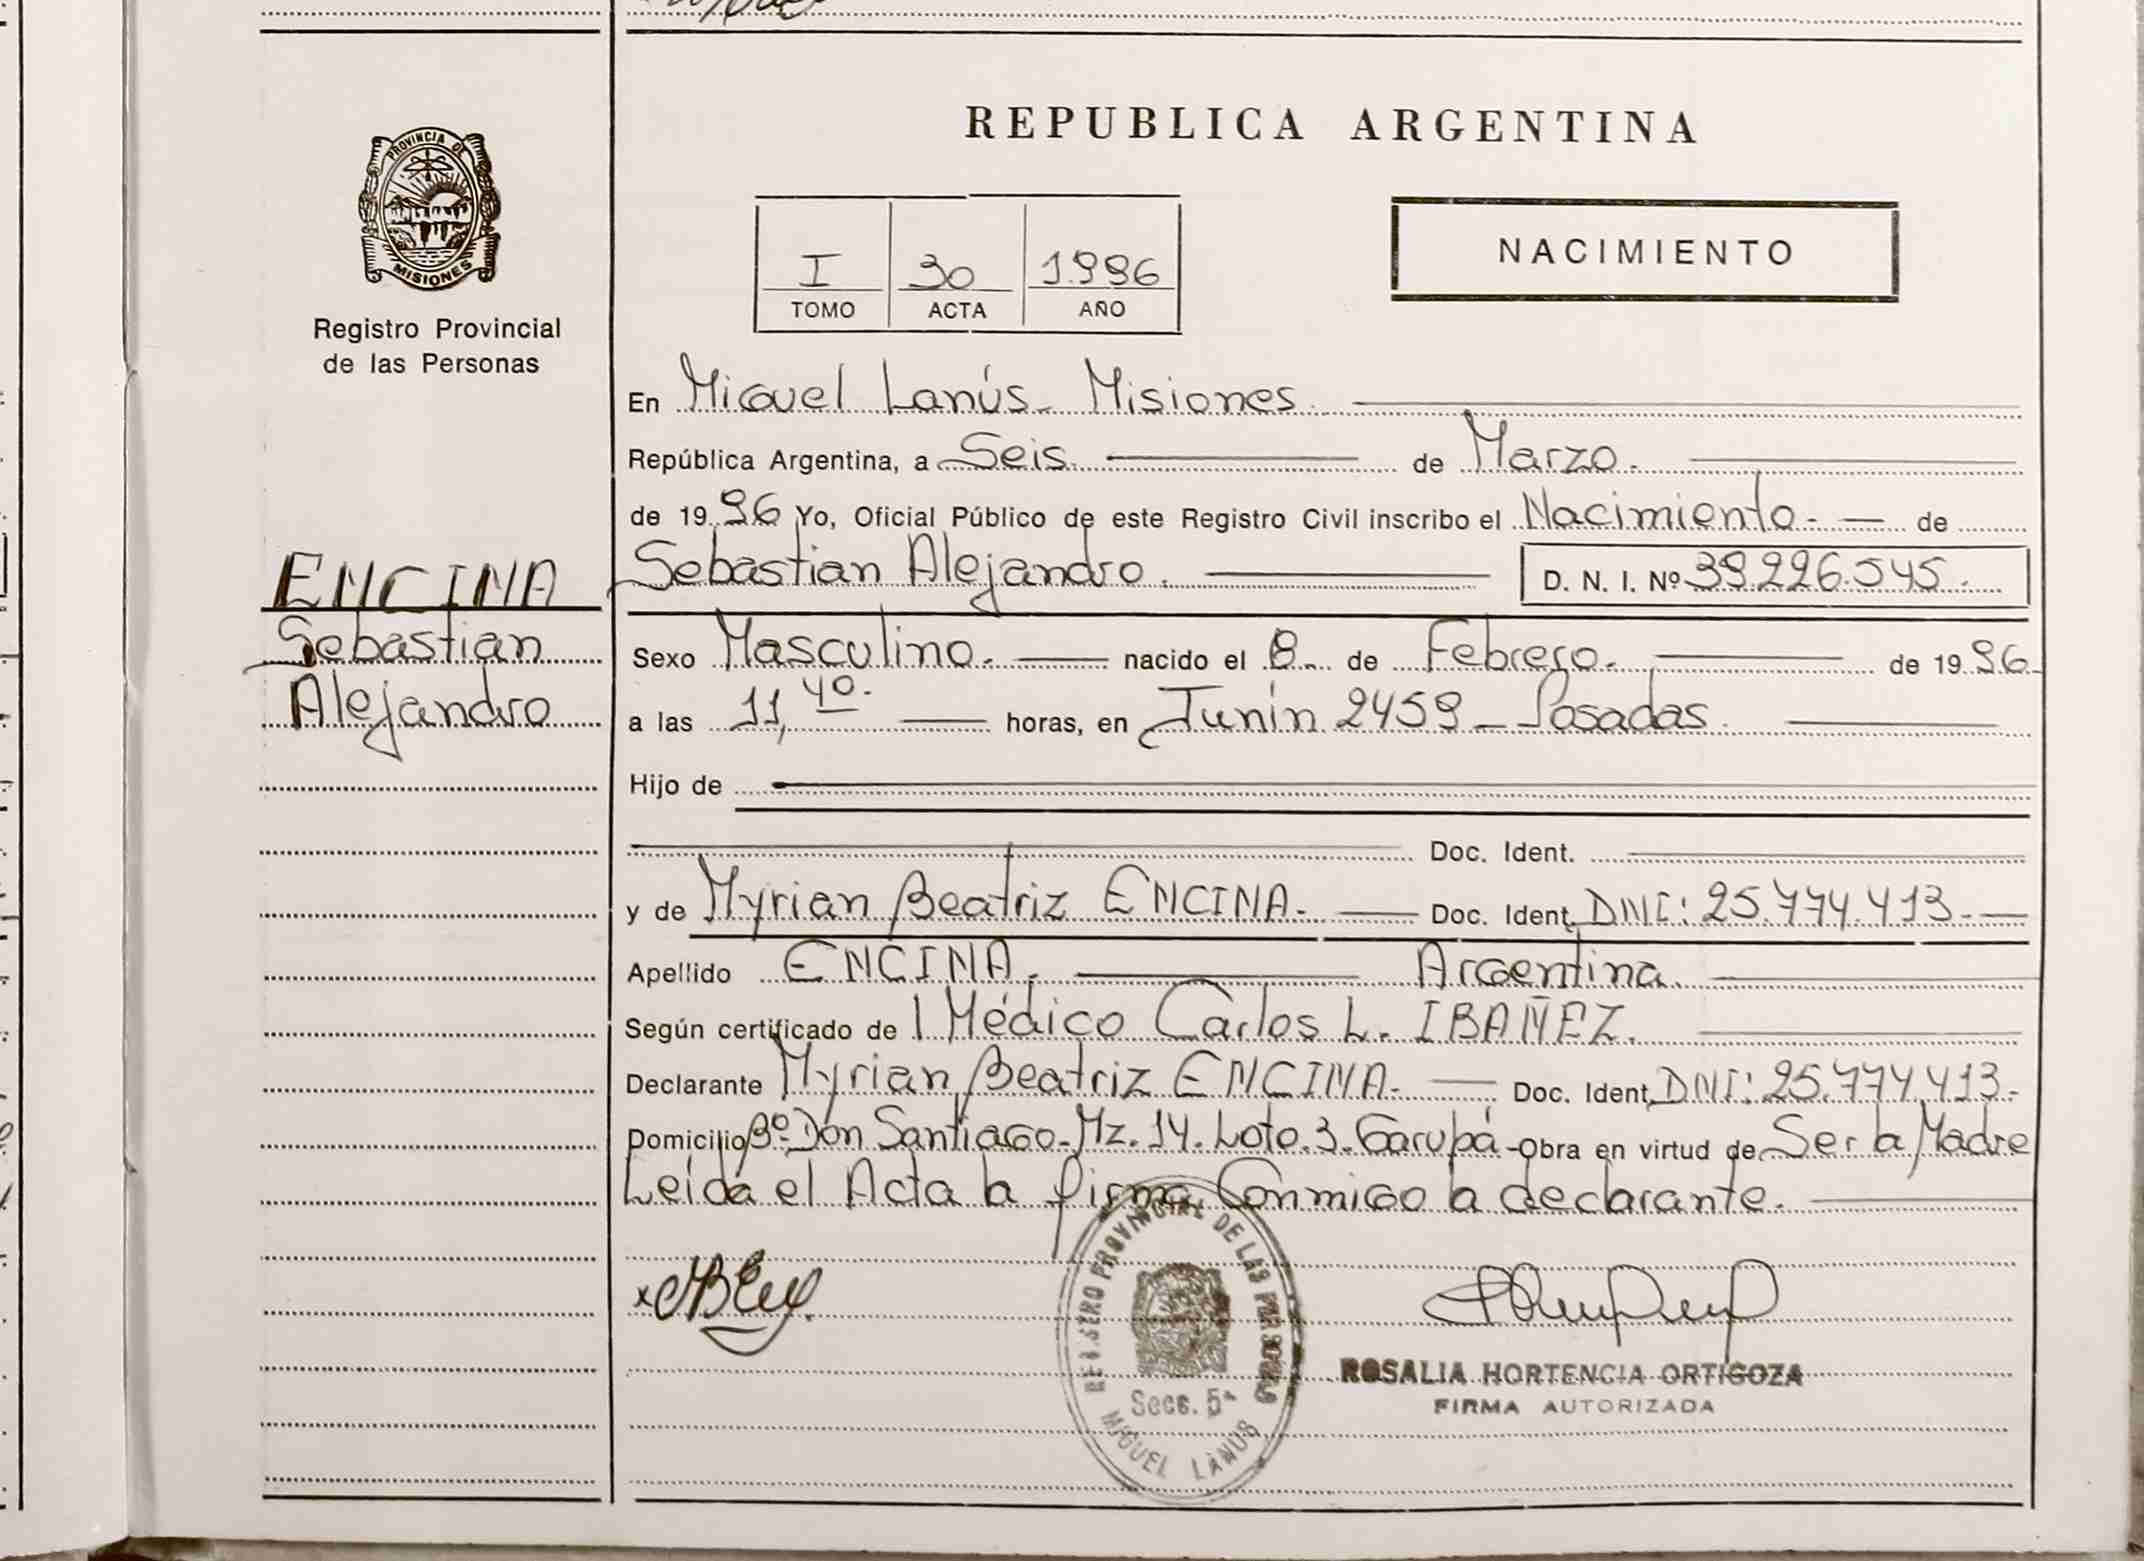 PROVINCIA DE
MISIONES
Registro Provincial
de las Personas
ENCINA
Sebastian
Alejandro
REPUBLICA ARGENTINA
I 30 1.996
TOMO ACTA AÑO
NACIMIENTO
En Miguel Lanús - Misiones.
República Argentina, a Seis. de Marzo.
de 19 96 Yo, Oficial Público de este Registro Civil inscribo el Nacimiento. - de
Sebastian Alejandro. D. N. I. Nº 39.226.545.
Sexo Masculino. nacido el 8 de Febrero. de 19 96
a las 11,40. horas, en Junín 2459 - Posadas.
Hijo de
Doc. Ident.
y de Myrian Beatriz ENCINA. Doc. Ident. DNI: 25.774.413.
Apellido ENCINA. Argentina.
Según certificado de l Médico Carlos L. IBAÑEZ.
Declarante Myrian Beatriz ENCINA. Doc. Ident. DNI: 25.774.413.
Domicilio Bº Don Santiago - Mz. 14. Lote. 3. Garupá - Obra en virtud de Ser la Madre
Leída el Acta la firma Conmigo la declarante.
REGISTRO PROVINCIAL DE LAS PERSONAS
Secc. 5ª
MIGUEL LANUS
ROSALIA HORTENCIA ORTIGOZA
FIRMA AUTORIZADA